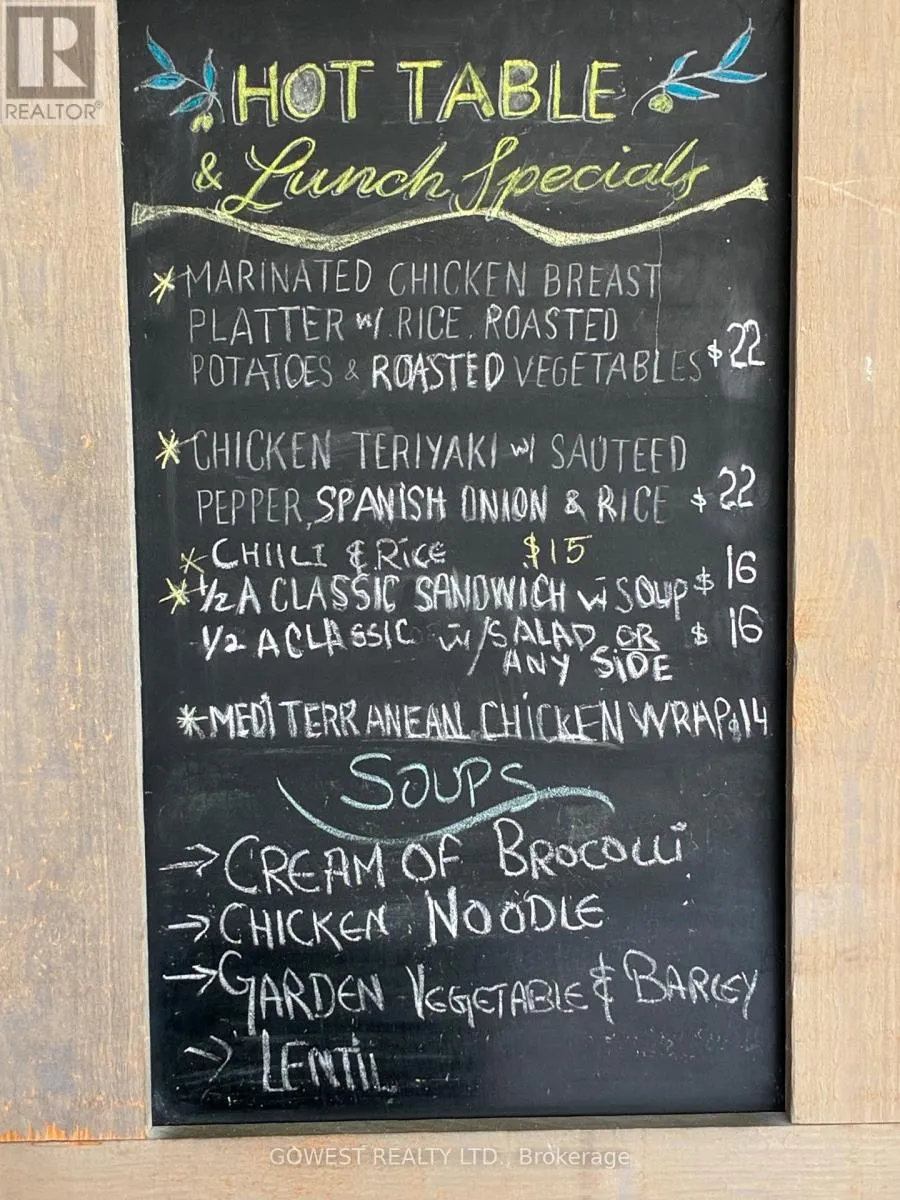 R
REALTOR®
HOT TABLE
& Lunch Specials
* MARINATED CHICKEN BREAST
PLATTER w/. RICE, ROASTED
POTATOES & ROASTED VEGETABLES $22
* CHICKEN TERIYAKI w/ SAUTEED
PEPPER, SPANISH ONION & RICE $22
* CHIILI & RICE $15
* 1/2 A CLASSIC SANDWICH w SOUP $16
1/2 A CLASSIC w/SALAD OR $16
ANY SIDE
* MEDITERRANEAN CHICKEN WRAP $14
SOUPS
→ CREAM OF BROCOLLI
→ CHICKEN NOODLE
→ GARDEN VEGETABLE & BARLEY
→ LENTIL
GOWEST REALTY LTD., Brokerage